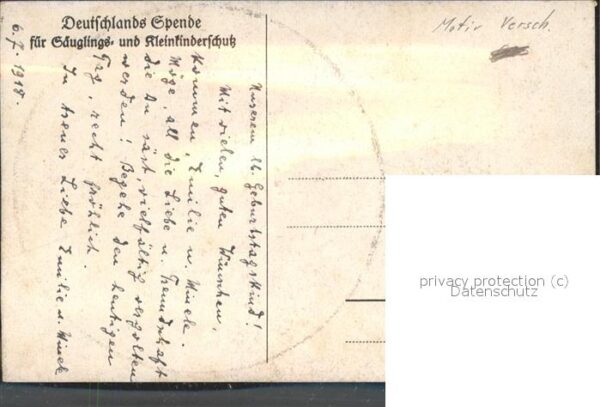 Deutschlands Spende
für Säuglings- und Kleinkinderschutz
Motiv Versch.
6.7.1918.
Unserem 26. Geburtstagskind!
Mit vielen, guten Wünschen,
kommen, Emilie u.
Möge, all die Liebe u. Freundschaft
die Du säst vielfältig vergolten
werden! Begehe den heutigen
Tag, recht fröhlich.
In treuer Liebe Emilie u.
privacy protection (c)
Datenschutz